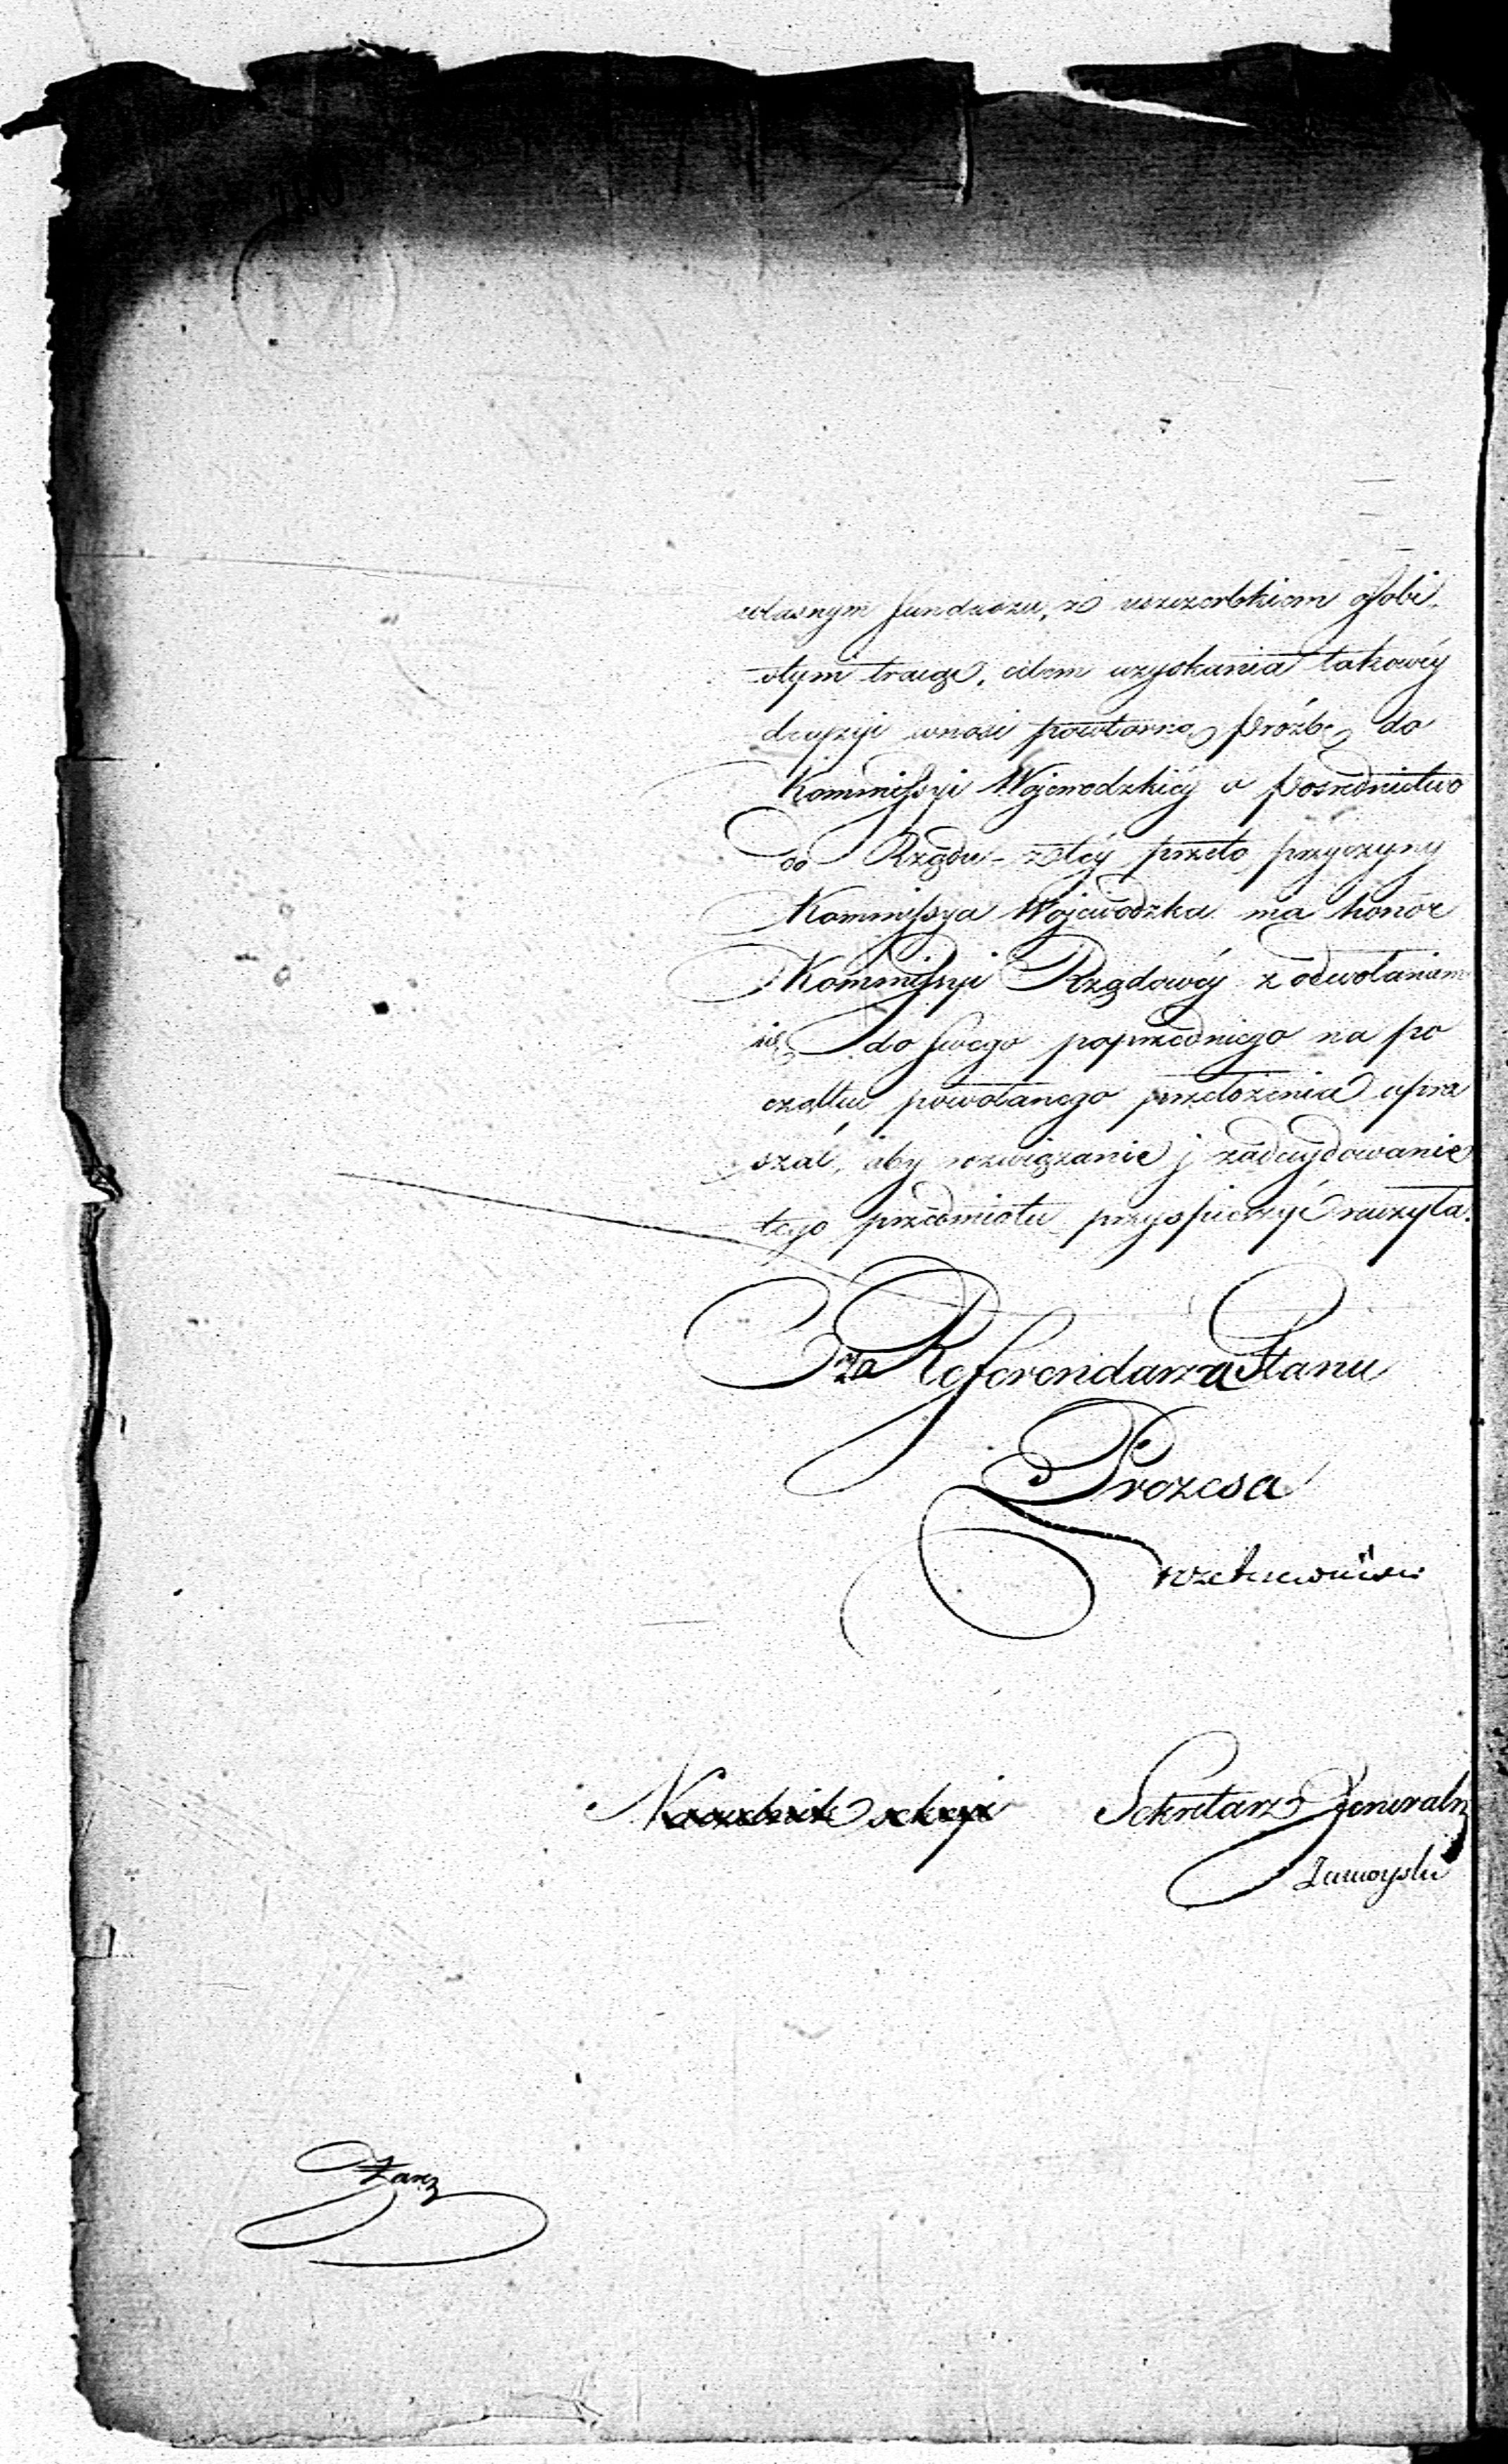 własnym funduszu, z uszczerbkiem osobi-
stym tracąc, celem uzyskania takowéy
decyzyi wnosi powtórną Prózbę do
Kommissyi Wojewodzkiéy o posrednictwo
do Rządu – z téy przeto przyczyny
Kommissya Wojewódzka ma honor
Kommissyi Rządowéy z odwołaniem
się do swego poprzedniego na po
czątku powołanego przełożenia upra
szać, aby rozwiązanie j zadecydowanie
tego przedmiotu przyspieszyć raczyła.
za Referendarza Stanu
Prezesa
Naczelnik Sekcyi Sekretarz Jeneralny
Zamoyski